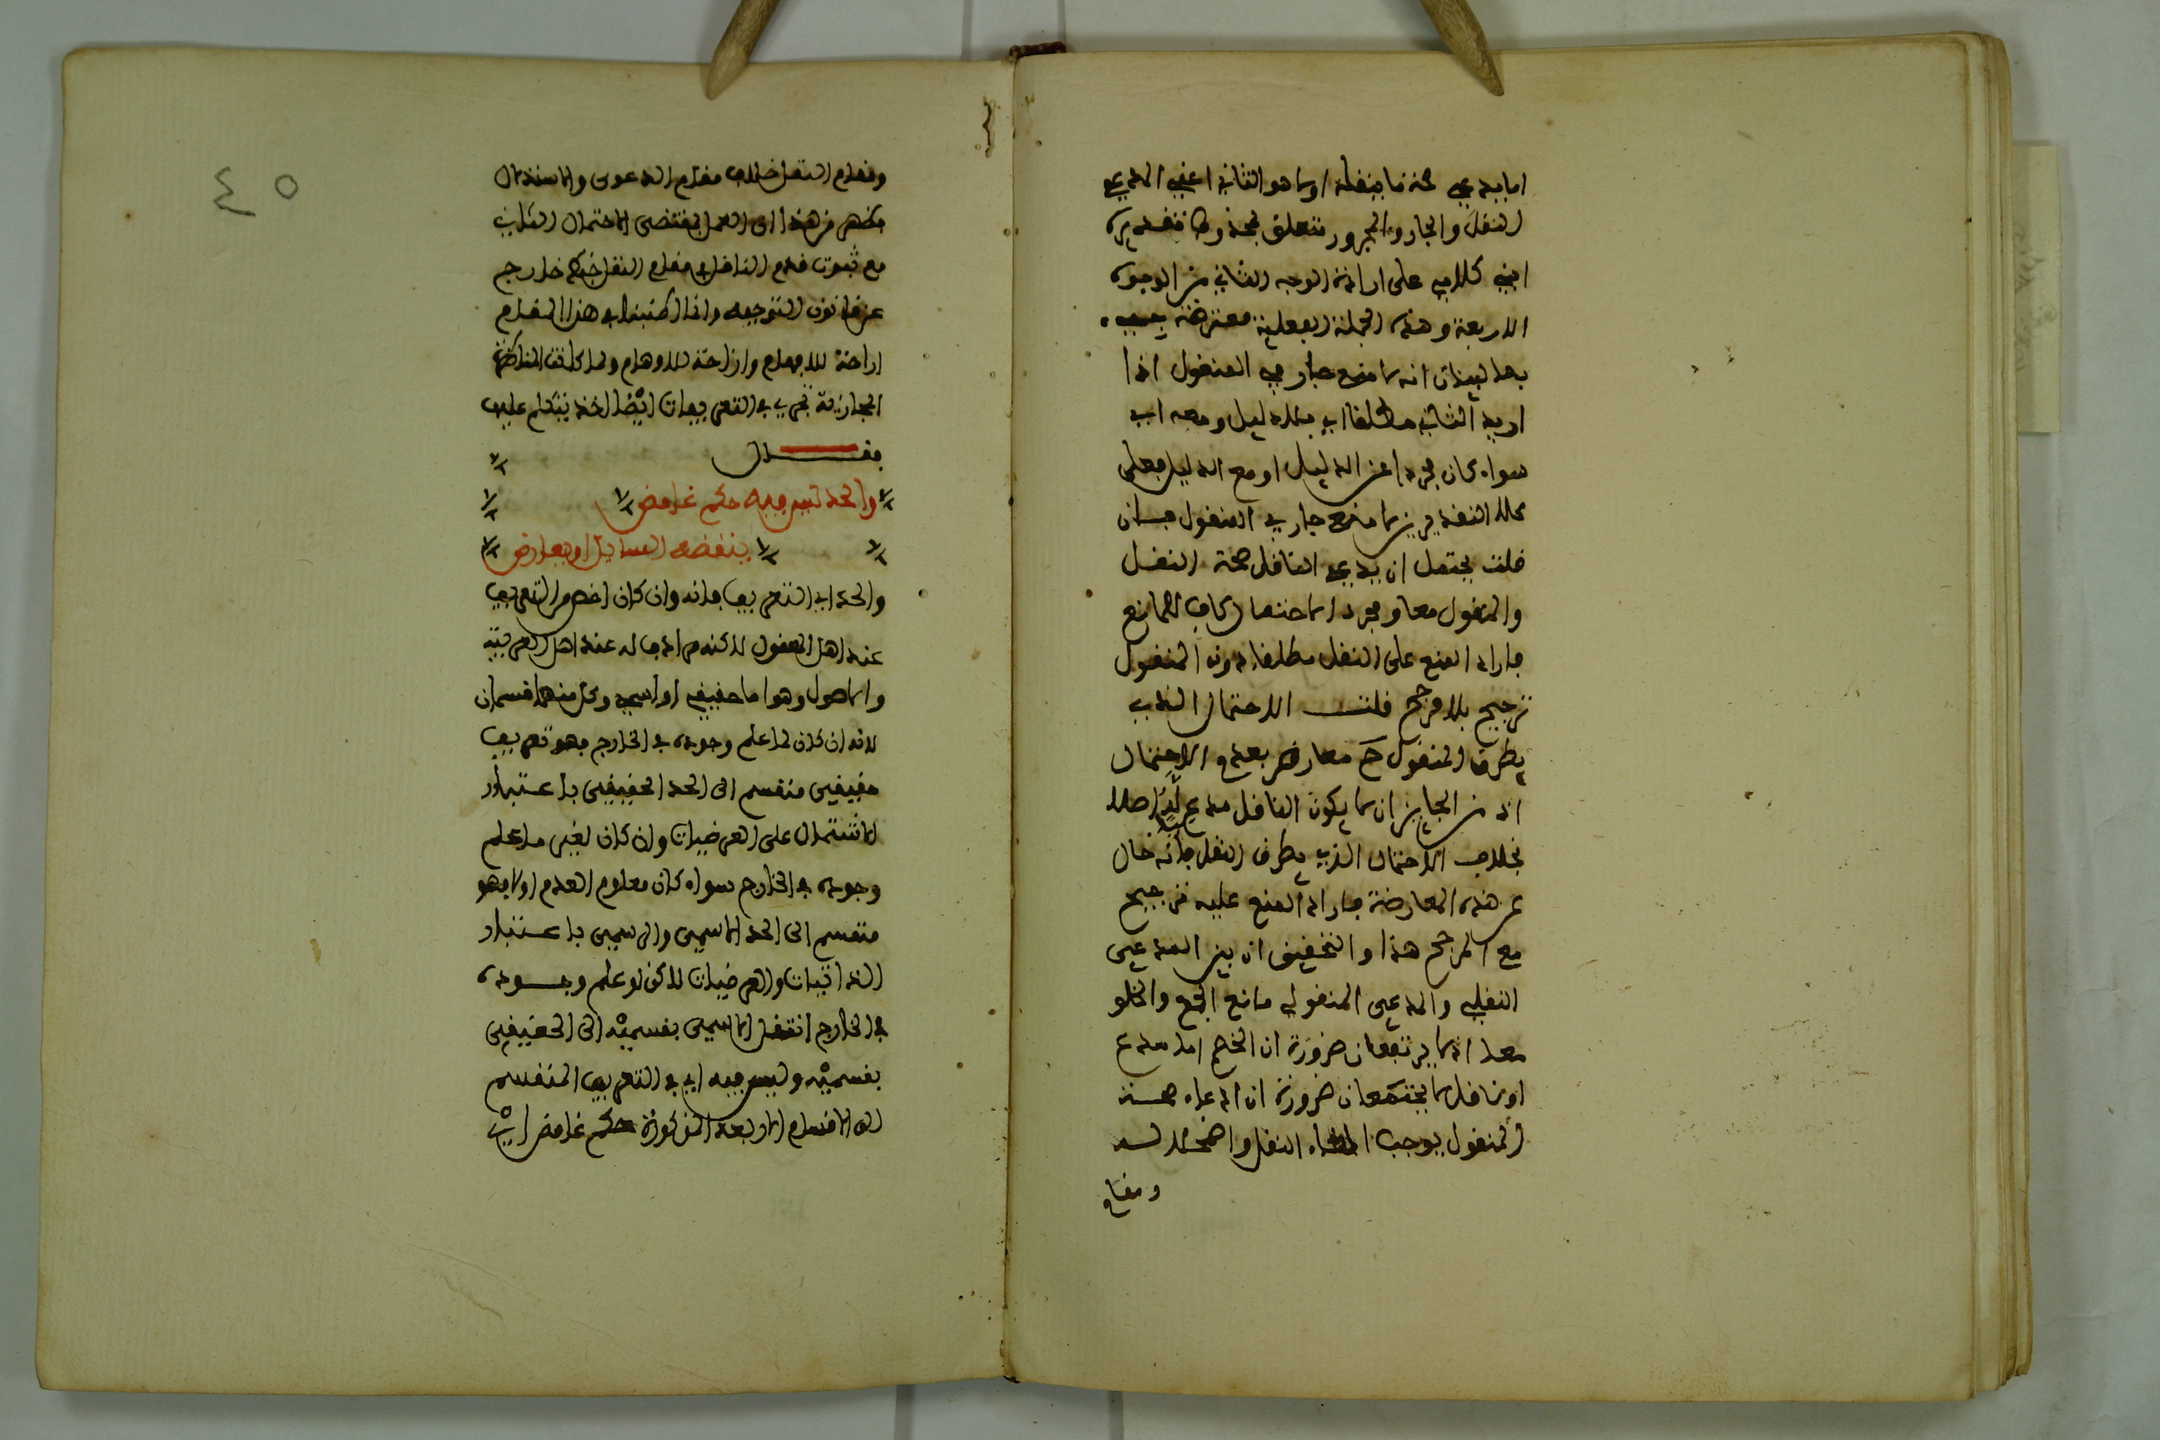 اما يدعي صحة ما ينقله او ما هو الثاني اعني المدعي
النقل والجار والمجرور متعلق بمحذوف تقديره
ابني كلامي على ارادة الوجه الثاني من الوجوه
الاربعة وهذه الجملة الفعلية معترضة
بعد لبيان انه لا منع جار في المنقول اذا
اريد الثاني مطلقا اي بلا دليل ومعه اي
سواء كان مجردا عن الدليل او مع الدليل فعلى
كلا التقديرين لا منع جار في المنقول فان
قلت يحتمل ان يدعي الناقل صحة النقل
والمنقول معا ومجرد الاحتمال كاف للمانع
فايراد المنع على النقل مطلقا دون المنقول
ترجيح بلا مرجح قلت الاحتمال الذي
بطرف المنقول ح معارض بعدم الاحتمال
اذ من الجايز ان لا يكون الناقل مدعيا اصلا
بخلاف الاحتمال الذي بطرف النقل فانه خال
عن هذه المعارضة فايراد المنع عليه ترجيح
مع المرجح هذا والتحقيق ان بين المدعي
النقلي والمدعي المنقولي مانع الجمع والخلو
معا اذ لا يرتفعان ضرورة ان الخصم اما مدع
او ناقل لا يجتمعان ضرورة ان ادعاء صحة
المنقول يوجب النقل واضمحلاله
ومقام
٤٥
ومقام النقل خلاف مقام الدعوى والاستدلال
فظهر من هذا ان العمل بمقتضى الاحتمال الثاني
مع ثبوت قدم الناقل في مقام النقل خارج
عن قانون التوجيه وانما اطنبنا في هذا المقام
اراحة للافهام وازاحة للاوهام ولما كانت المناظرة
الجارية تجري في التعريفات ايضا اخذ يتكلم عليها
فقال
والحد ليس فيه حكم غامض
ينقضه السايل او يعارض
والحد اي التعريف فانه وان كان اخص من التعريف
عند اهل المعقول لاكنه مرادف له عند اهل العربية
والاصول وهو اما حقيقي او اسمي وكل منهما قسمان
لانه ان كان لما علم وجوده في الخارج فهو تعريف
حقيقي منقسم الى الحد الحقيقي باعتبار
الاشتمال على العرضيات وان كان لغير ما علم
وجوده في الخارج سواء كان معلوم العدم او لا فهو
منقسم الى الحد الاسمي والرسمي باعتبار
الذاتيات والعرضيات لاكن لو علم وجوده
في الخارج انتقل الاسمي بقسميه الى الحقيقي
بقسميه وليس فيه اي في التعريف المنقسم
الى الاقسام الاربعة المذكورة حكم غامض اي